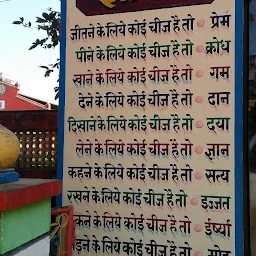 जीतने के लिये कोई चीज है तो • प्रेम
पीने के लिये कोई चीज है तो • क्रोध
खाने के लिये कोई चीज है तो • गम
देने के लिये कोई चीज है तो • दान
दिखाने के लिये कोई चीज है तो • दया
लेने के लिये कोई चीज है तो • ज्ञान
कहने के लिये कोई चीज है तो • सत्य
रखने के लिये कोई चीज है तो • इज्जत
के लिये कोई चीज है तो • ईर्ष्या
के लिये कोई चीज है तो • मोह